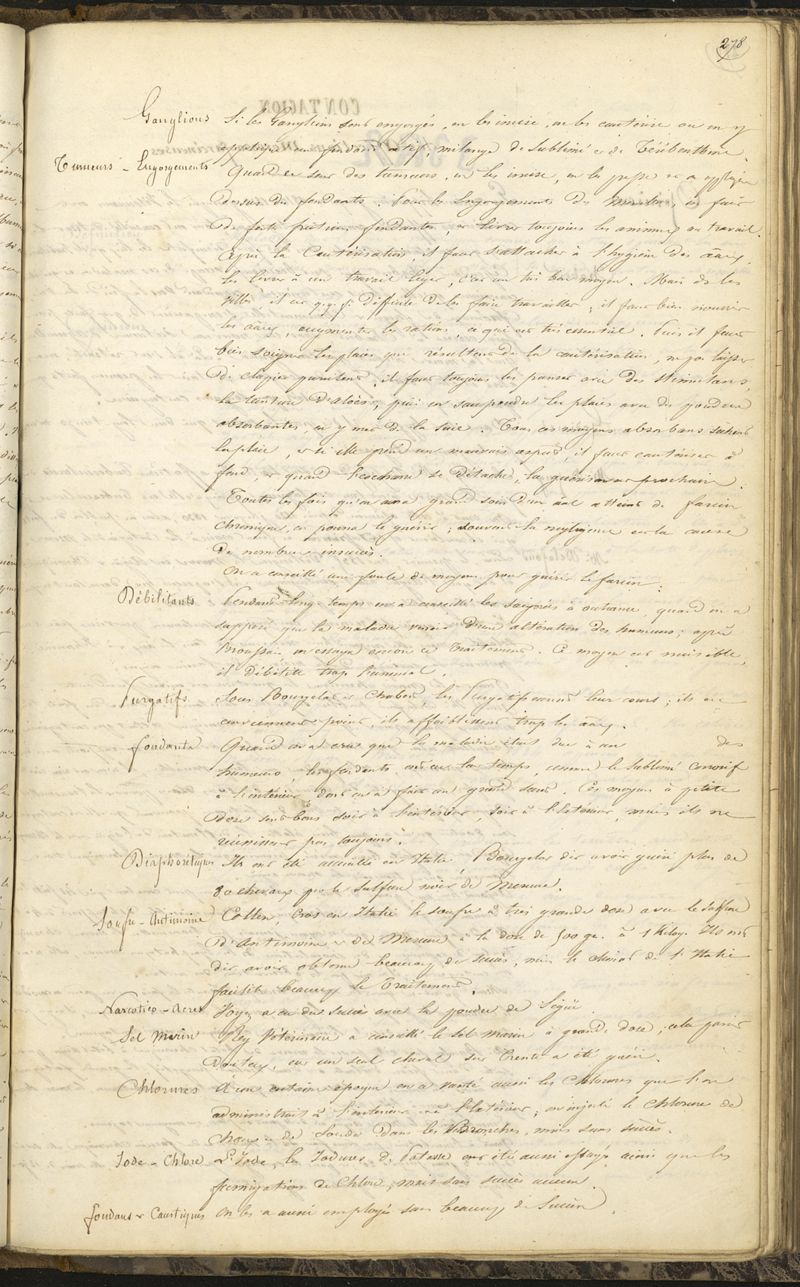 278
Ganglions Si les Ganglions sont engorgés, on les incise, on les cautérise ou on y
applique un fondant, mélange de Sublimé et de Térébenthine.
Tumeurs - Engorgements Quand ce sont des tumeurs, on les incise, on les et on applique
dessus des fondants. Pour les Engorgements des Membres, on fait
de forte friction fondantes, et livrer toujours les animaux au travail.
Après la Cautérisation, il faut s'attacher à l'hygiène des aaux,
les livrer à un travail léger, c'est un très bon moyen. Mais de les
il est qq.f. difficile de les faire travailler; il faut bien nourrir
les aaux, augmenter les rations, ce qui est très essentiel. Puis il faut
bien soigner les plaies qui résultent de la cautérisation, ne pas laisser
de clapier purulent, il faut toujours les panser avec des Stimulants,
la teinture d'aloès, puis on saupoudre les plaies avec des poudres
absorbantes, on y met de la suie. Tous ces moyens absorbans sèchent
la plaie, et si elle prend un mauvais aspect il faut cautériser à
fond, et quand l'escharre se détache, la guérison est prochaine.
Toutes les fois qu'on aura grand soin d'un aal atteint de farcin
chronique, on pourra le guérir; souvent la négligence est la cause
de nombreux insuccès.
On a conseillé une foule de moyens pour guérir le farcin:
Débilitants Pendant long-temps on a conseillé les saignées à outrance, quand on a
supposé que la maladie venait d'une altération des humeurs; après
Broussais on essaya encore ce traitement. Ce moyen est nuisible,
il débilite trop l'animal.
Purgatifs Sous Bourgelat et Chabert, les Purgatifs eurent leur cours; ils ne
conviennent point, ils affaiblissent trop les aaux.
fondants Quand on a cru que la maladie était due à un des
humeurs, les fondants ont eu leur temps, comme le Sublimé Corrosif
à l'intérieur dont on a fait un grand . Ces moyens à petite
dose sont bons soit à l'intérieur, soit à l'extérieur, mais ils ne
réussissent pas toujours.
Diaphorétiques Ils ont été conseillés en Italie. Bourgelat dit avoir guéri plus de
80 chevaux par le Sulfure noir de Mercure.
Soufre - Antimoine Collen, en Italie le soufre à très grande dose avec le Sulfure
d'Antimoine et de Mercure à la dose de 500 gr. à 1 Kilog. Ils ont
dit avoir obtenu beaucoup de succès, mais le climat de l'Italie
facilite beaucoup le traitement.
Narcotico-Acres a eu du succès avec la poudre de Ciguë.
Sel Marin Rey Vétérinaire a conseillé le Sel Marin à grande dose, cela parait
douteux, car un seul cheval sur trente a été guéri.
Chlorures A une certaine époque on a vanté aussi les Chlorures que l'on
administrait à l'intérieur et à l'extérieur; on injecté le Chlorure de
Chaux et de Soude dans les Bronches, mais sans succès.
Iode - Chlore L'Iode, les Iodures de Potasse ont été aussi essayé ainsi que les
fumigations de Chlore, mais sans succès aucun.
fondans et Caustiques On les a aussi employés sans beaucoup de Succès.